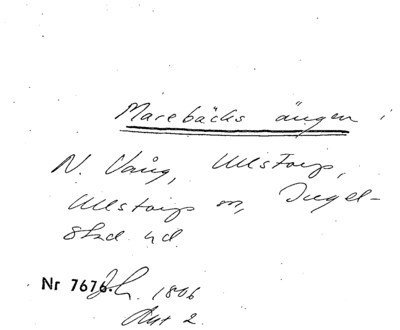 Marebäcks ängen i
N. Vång, Ullstorp,
Ullstorps sn, Ingel-
stad hd.
Nr 7676. 1806
Akt 2.